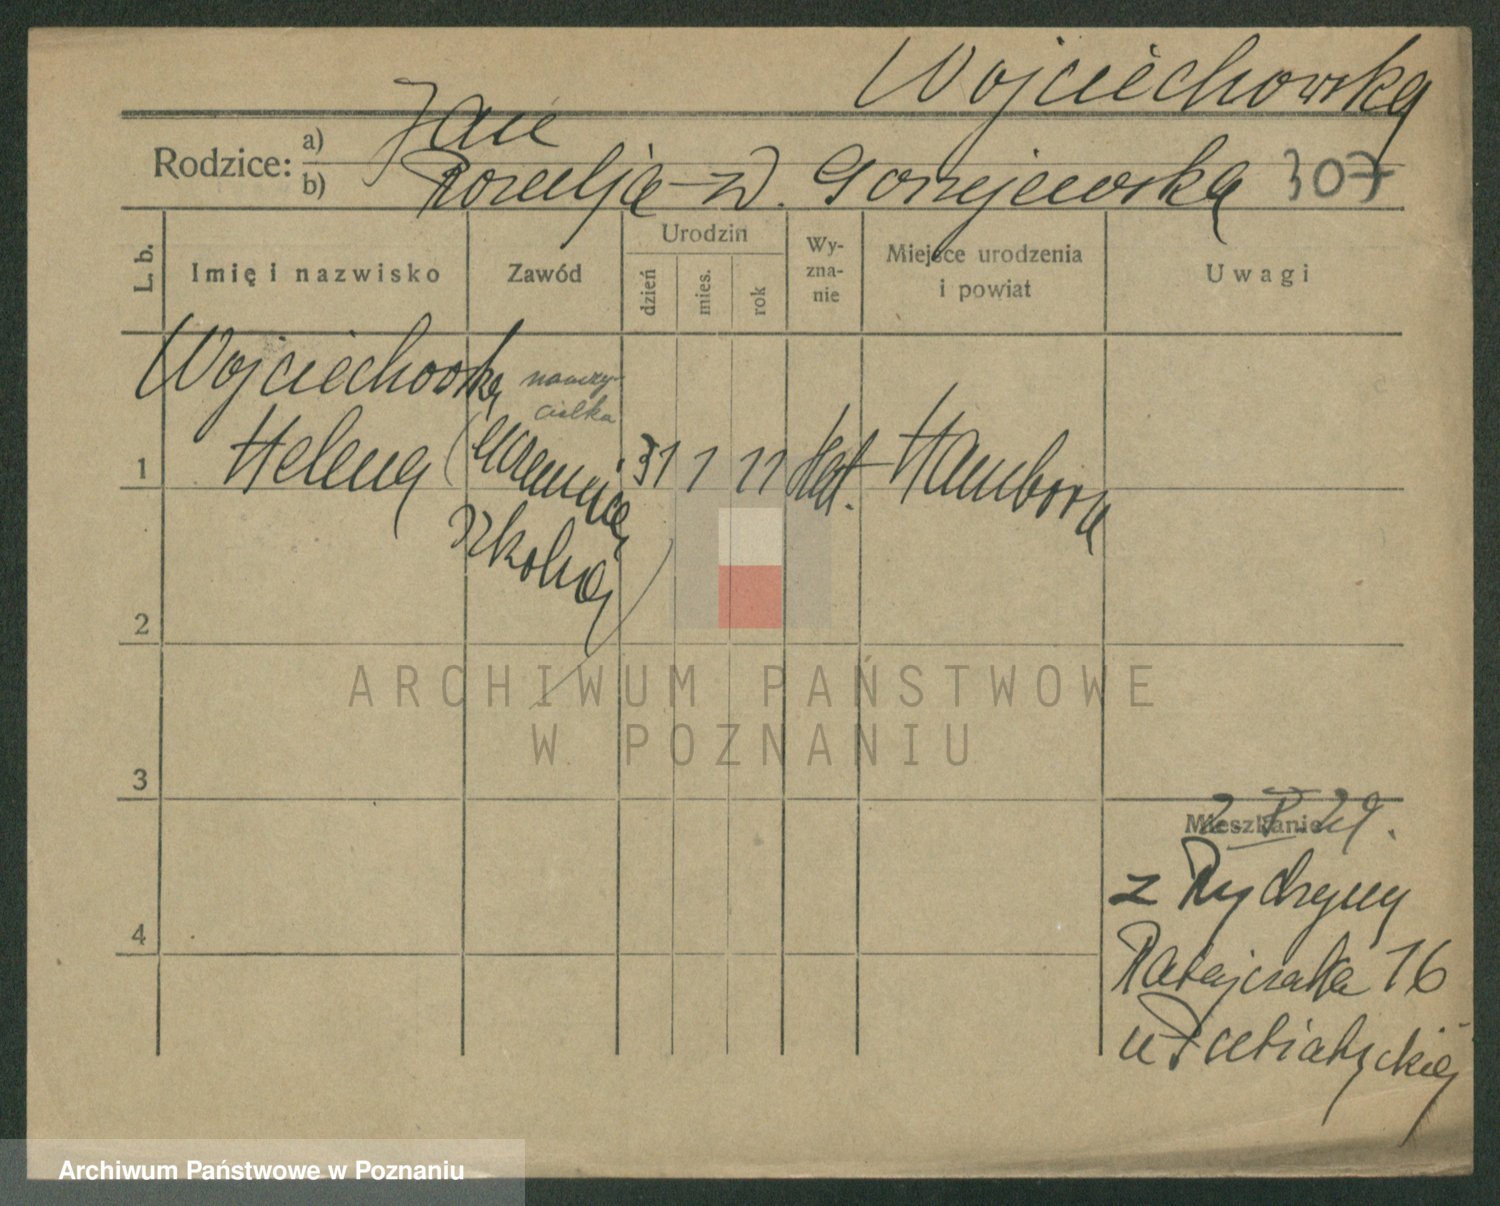 Wojciechowska
Rodzice:
a) Jan
b) Rozalja z d. Gorzejewska 307
L. b.
Imię i nazwisko
Zawód
Urodzin
dzień
mies.
rok
Wy-
zna-
nie
Miejsce urodzenia
i powiat
Uwagi
Wojciechowska
Helena
nauczy-
cielka
(uczennica
szkolna)
1
31 1 11 kat. Hamborn
2
3
4
Mieszkanie
z Rydzyny
Ratajczaka 16
u
ARCHIWUM PAŃSTWOWE
W POZNANIU
Archiwum Państwowe w Poznaniu